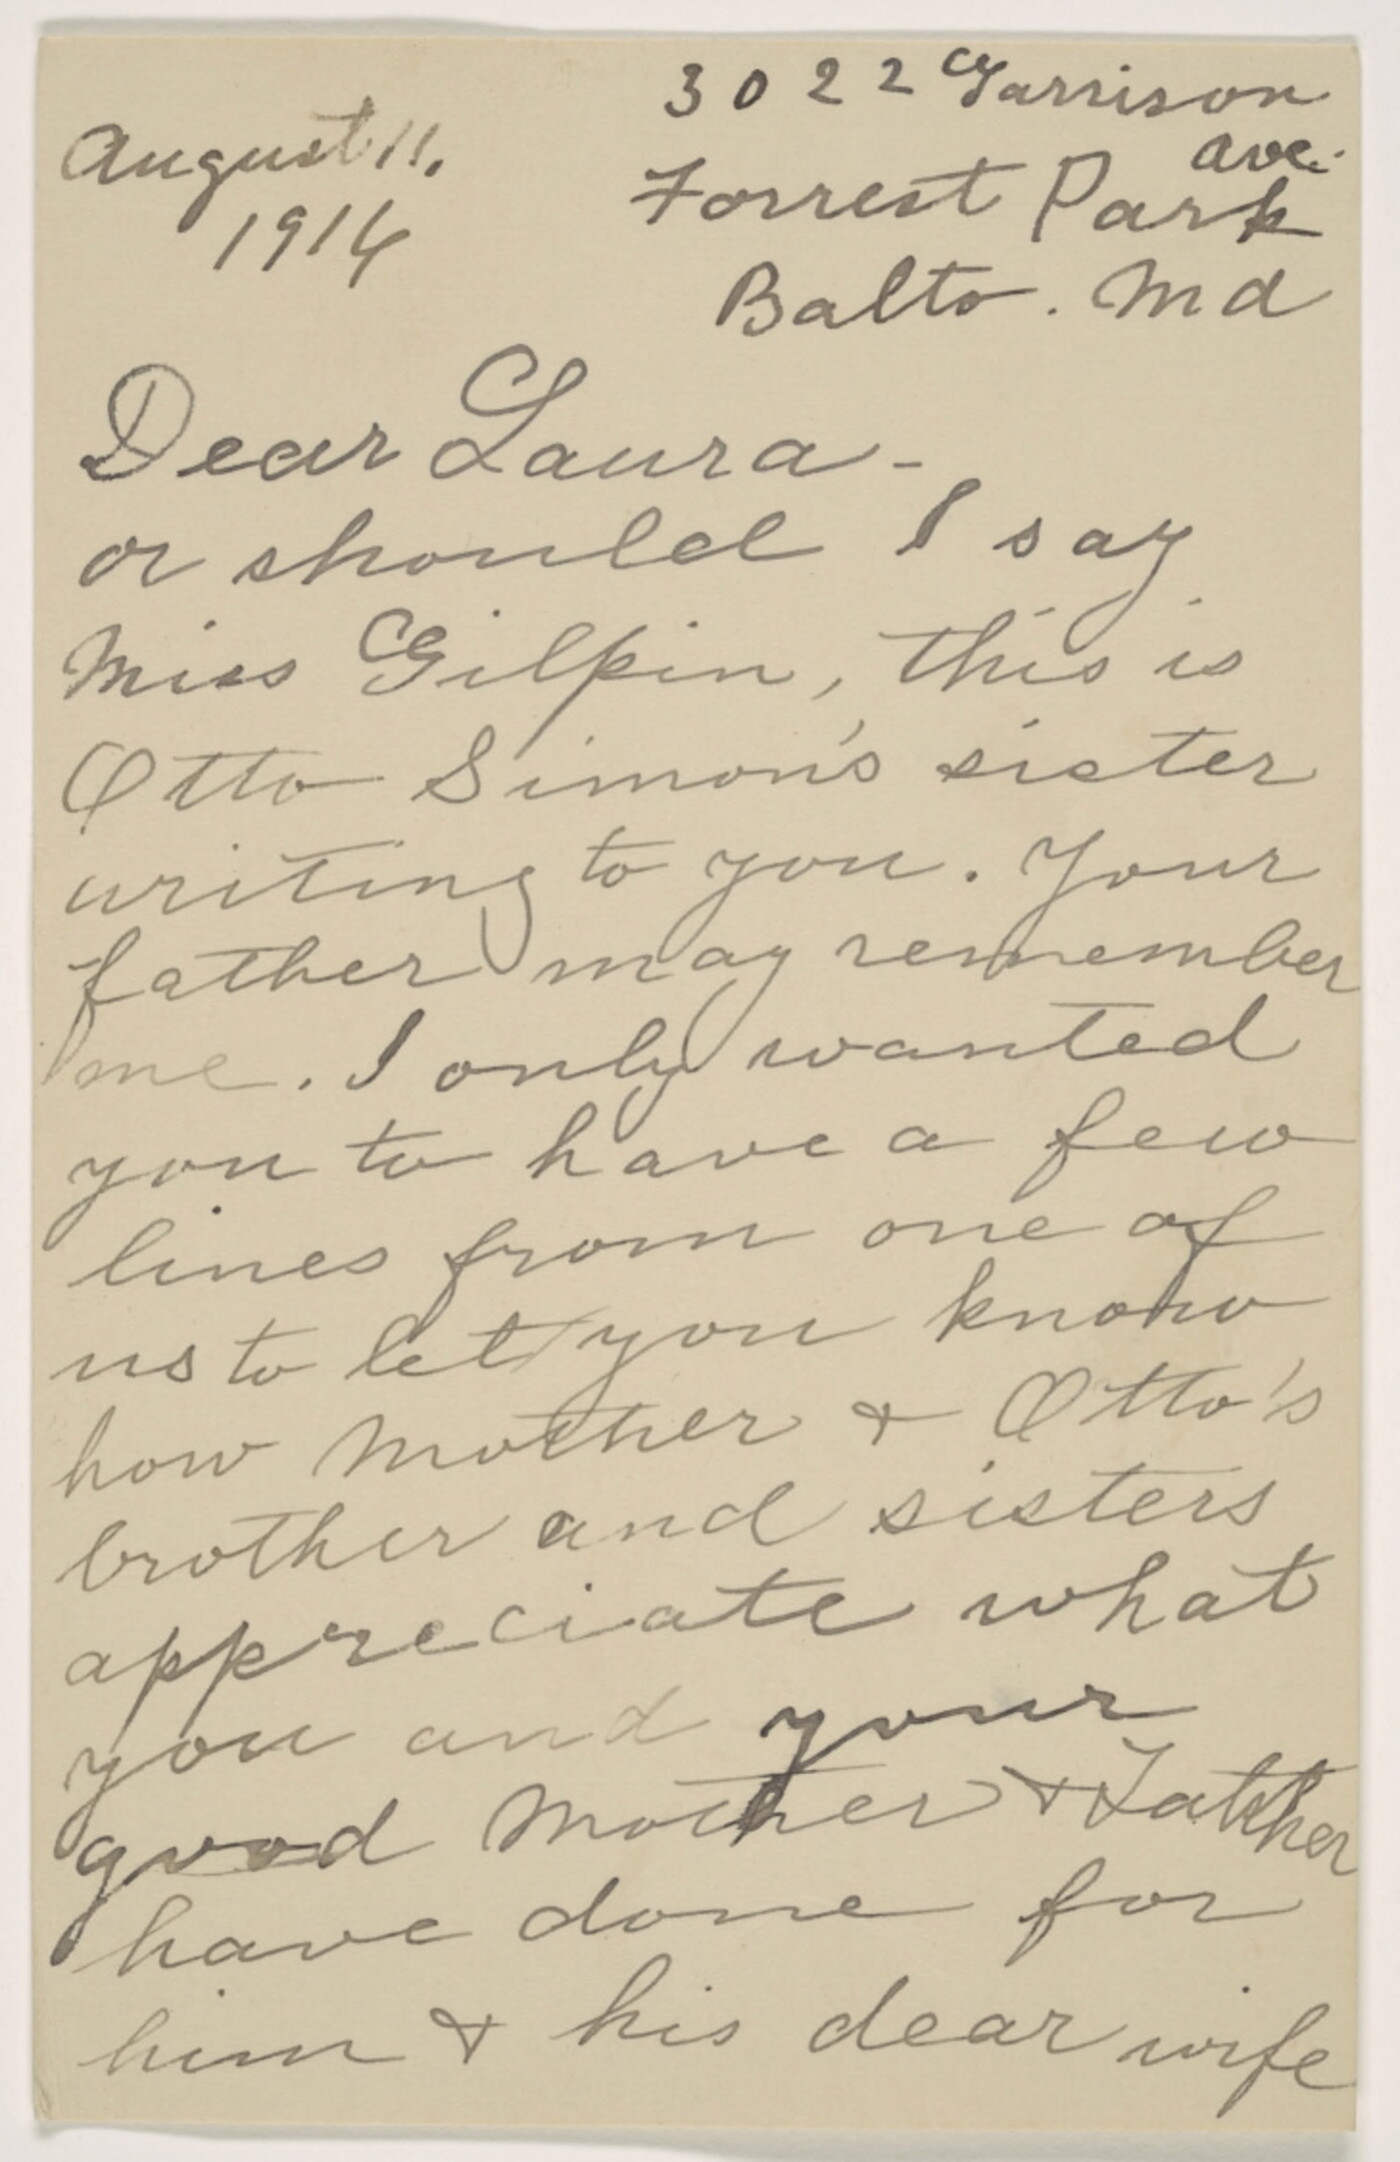 3022 Garrison
Ave.
August 11,
1914
Forrest Park
Balto. Md
Dear Laura -
or should I say
Miss Gilpin, this is
Otto Simon's sister
writing to you. Your
father may remember
me. I only wanted
you to have a few
lines from one of
us to let you know
how Mother & Otto's
brother and sisters
appreciate what
you and your
good Mother & Father
have done for
him & his dear wife